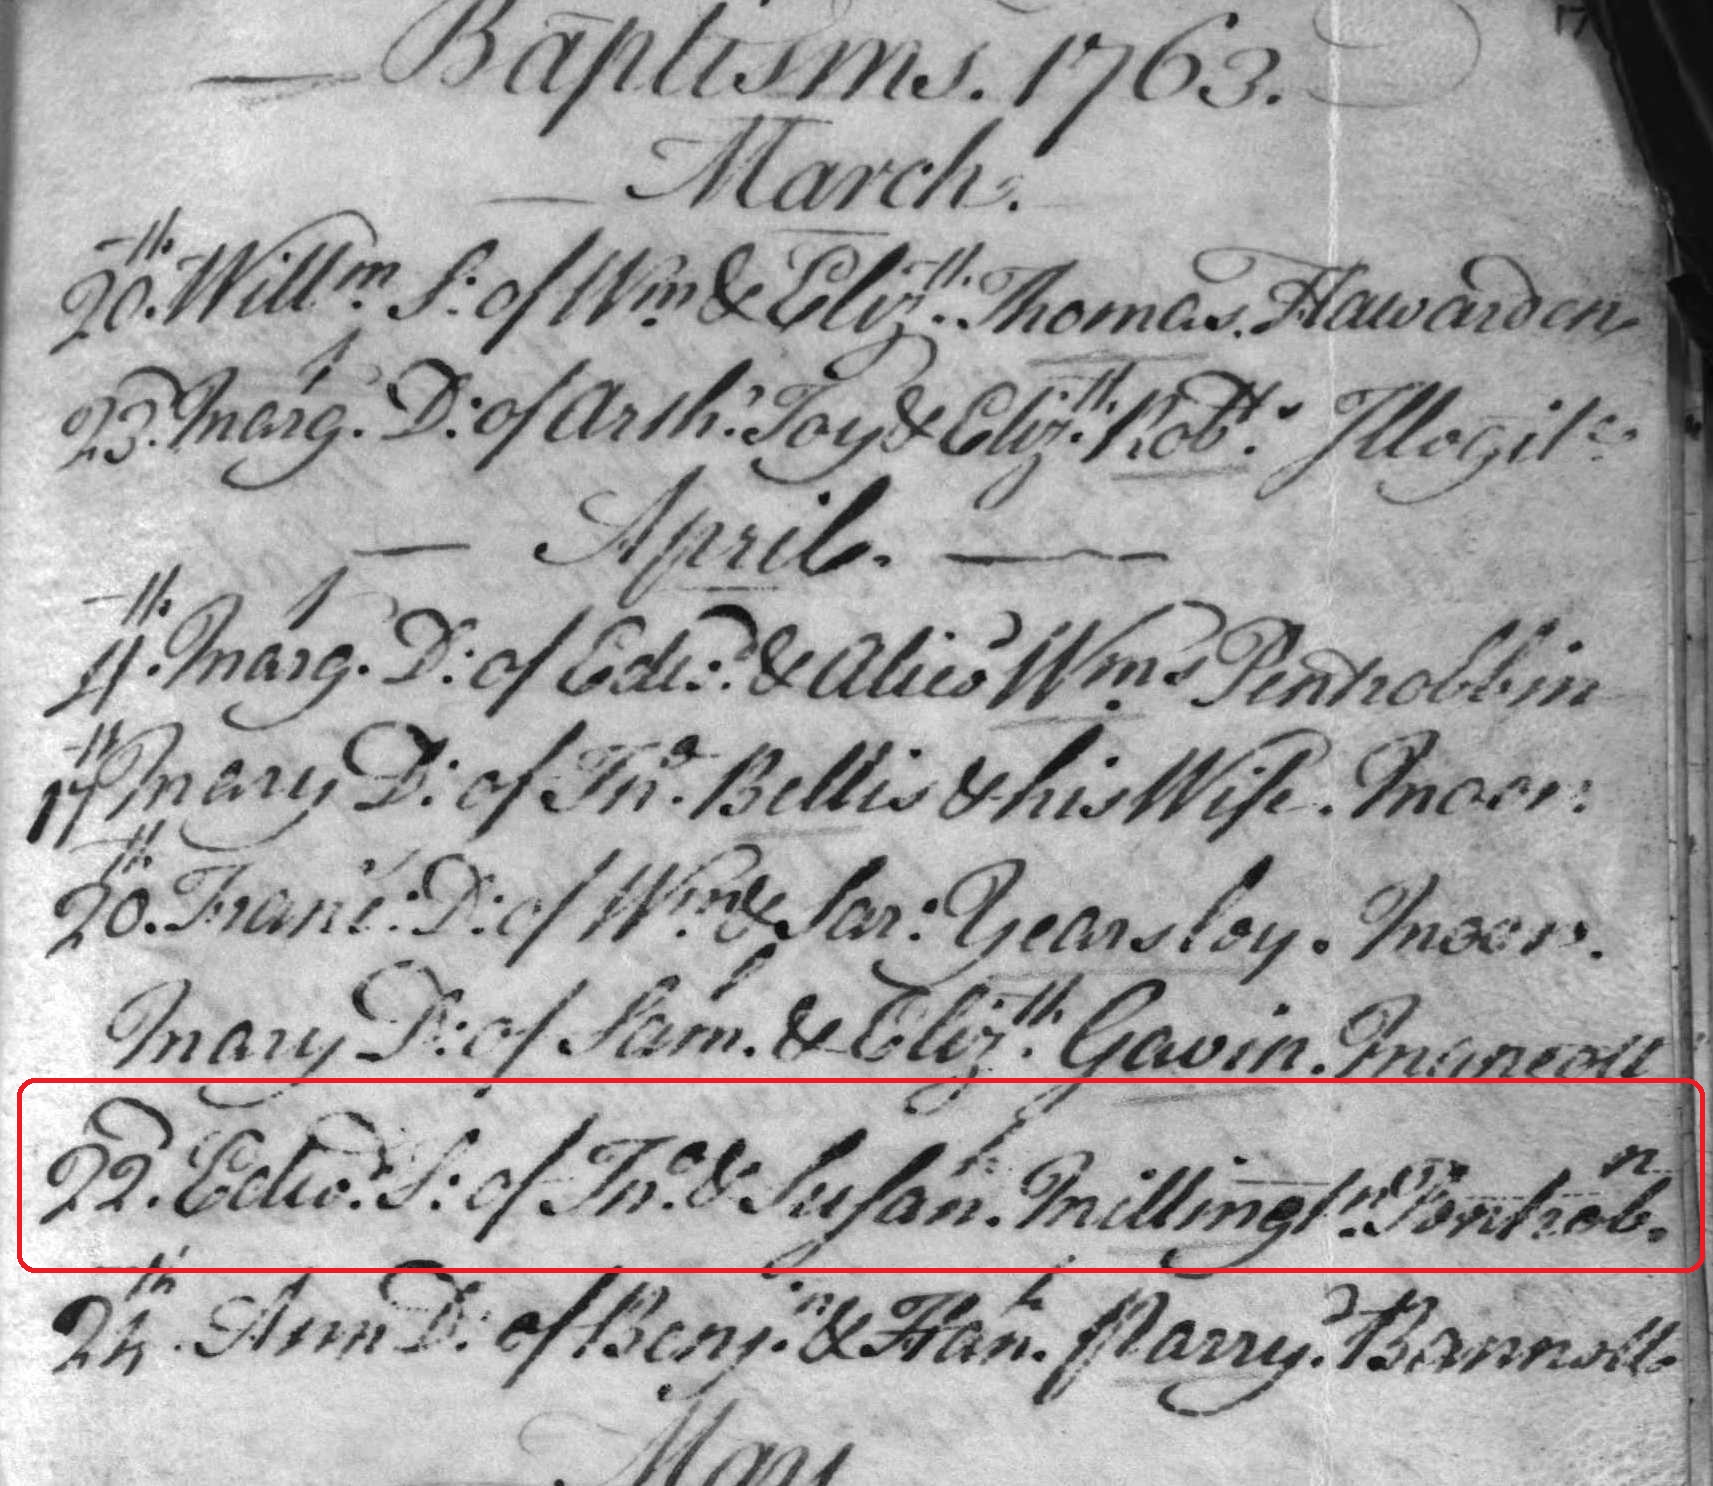 17
Baptisms. 1763.
March.
20.th Willm S: of Wm & Eliz.th Thomas. Hawarden
23.d Marg.t D: of Arth.r Joy & Eliz.th Rob.ts Illegit.e
April.
4.th Marg.t D: of Edw.d & Alice Wms Pentrobbin
17th Mary D: of Jn.o Bellis & his Wife. Moor.
20.th Fran.s: D: of Wm & Sar: Yearsley. Moor.
Mary D: of Sam.l & Eliz.th Gavin. Mancott
22.d Edw.d S: of Jn.o & Susan.h Millingt.n Pentrob.n
24.th Ann D: of Benj.n & Han.h Parry. Bannell.
May